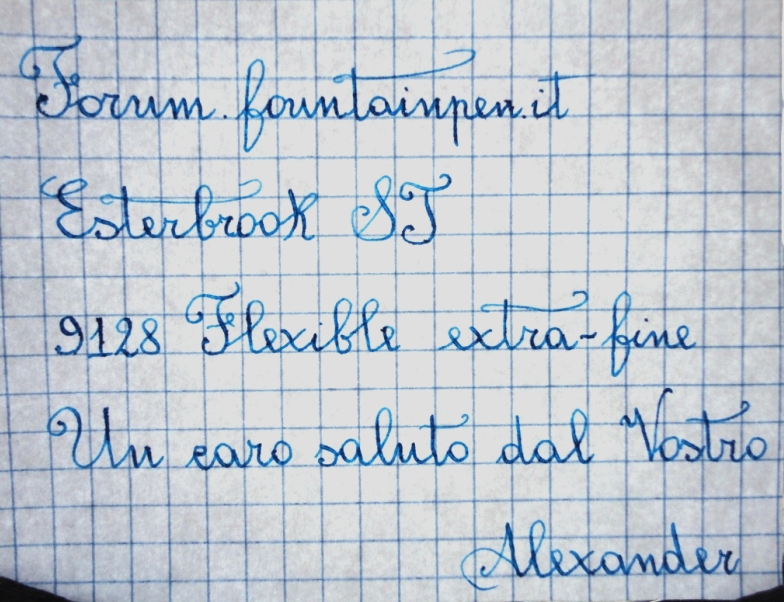 Forum.fountainpen.it
Esterbrook SJ
9128 Flexible extra-fine
Un caro saluto dal Vostro
Alexander